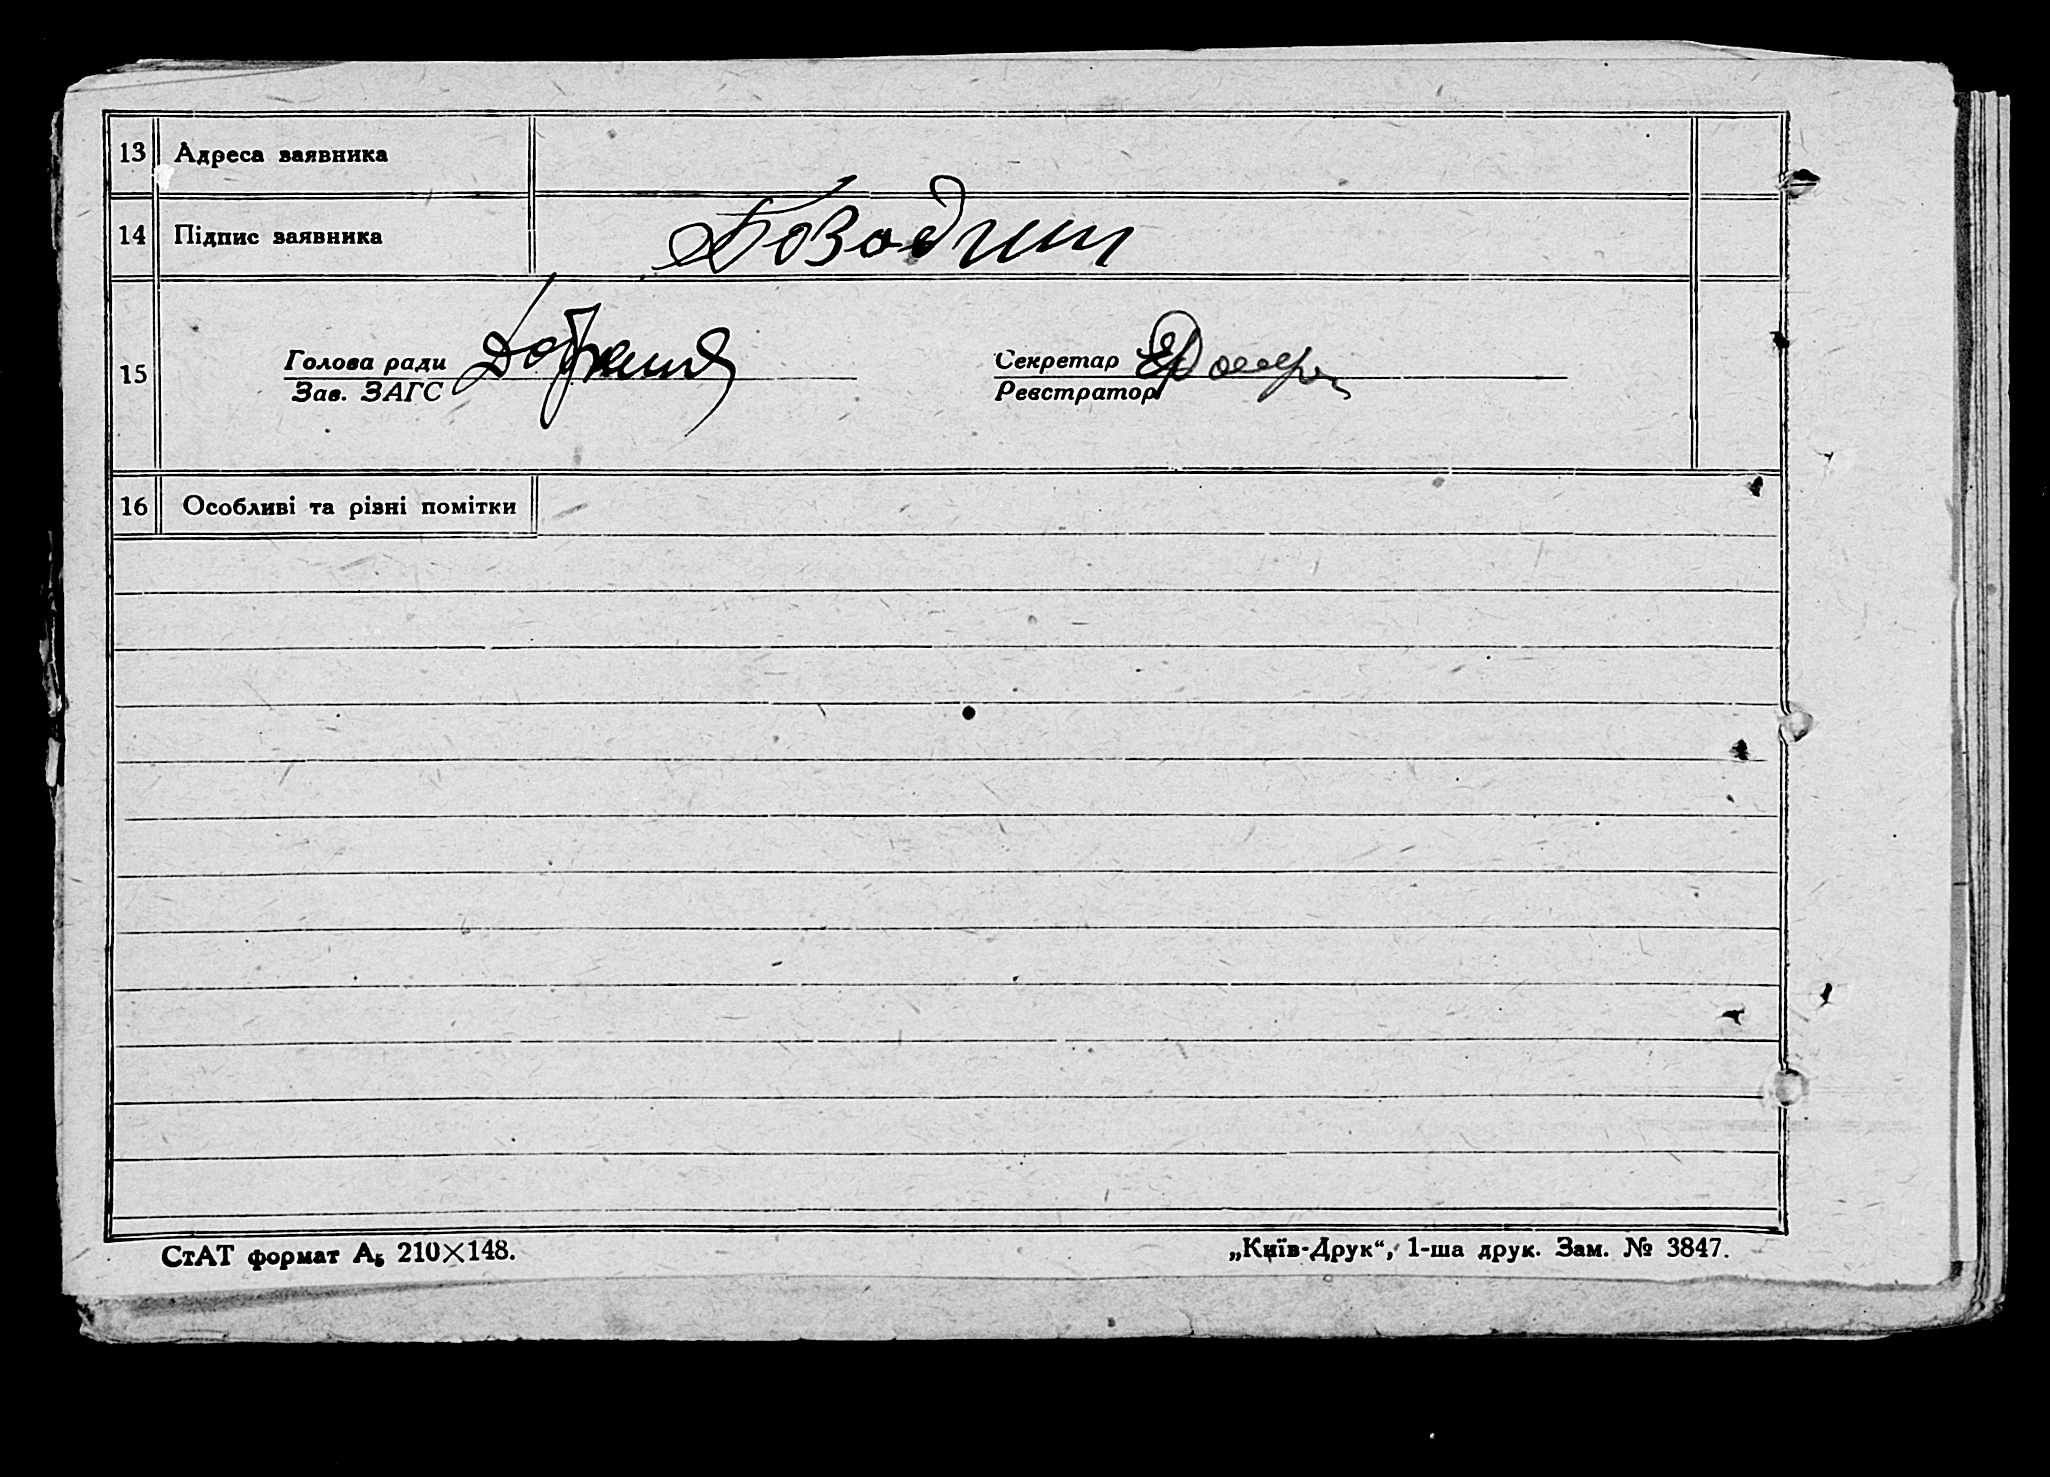 13 Адреса заявника
14 Підпис заявника
15 Голова ради
Зав. ЗАГС
Секретар
Реєстратор
16 Особливі та різні помітки
СтАТ формат А₅ 210×148.
„Київ-Друк“, 1-ша друк. Зам. № 3847.